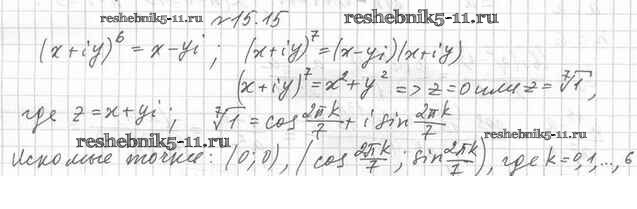 №15.15
reshebnik5-11.ru reshebnik5-11.ru
(x+iy)⁶ = x-yi ; (x+iy)⁷ = (x-yi)(x+iy)
(x+iy)⁷ = x²+y² => z=0 или z = ⁷√1,
где z=x+yi ; ⁷√1 = cos 2πk/7 + i sin 2πk/7
reshebnik5-11.ru reshebnik5-11.ru
Искомые точки: (0;0), (cos 2πk/7 ; sin 2πk/7), где k=0,1,...,6